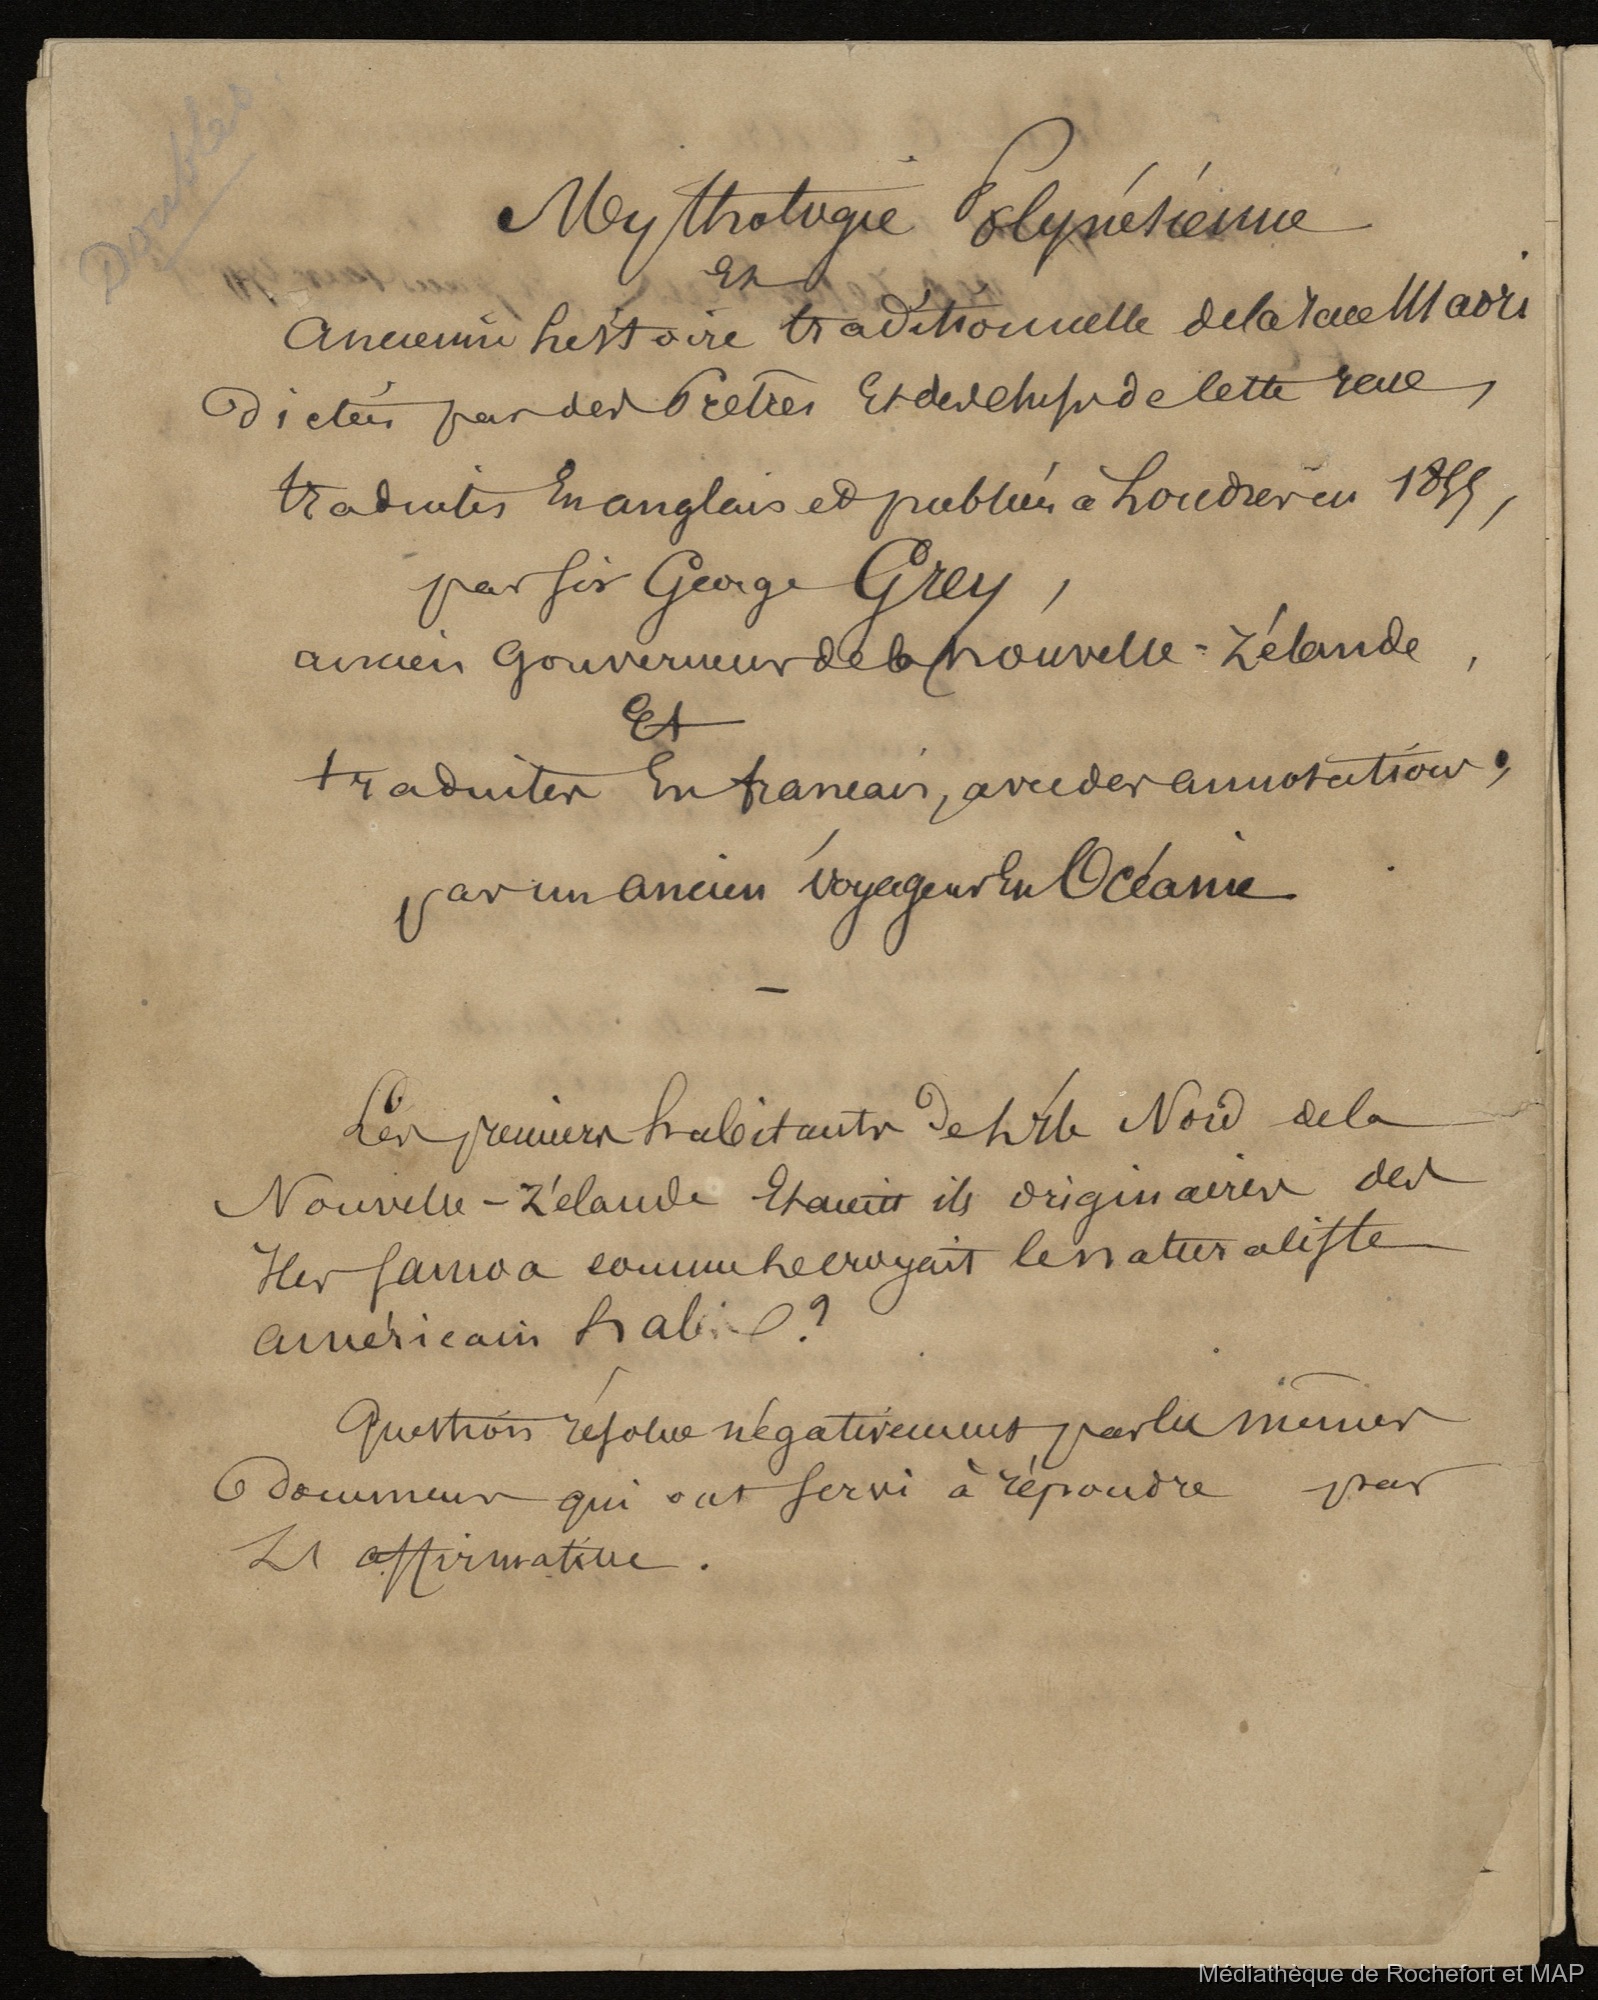 Doubles
Mythologie Polynésienne
Et
Ancienne histoire traditionnelle de la race Maori
Dictées par des Prêtres Et des chefs de cette race,
traduites En anglais et publiées à Londres en 1855,
par Sir George Grey,
ancien Gouverneur de la nouvelle-Zélande,
Et
traduites En francais, avec des annotations,
par un ancien Voyageur En Océanie
—
Les premiers habitants De l'île Nord de la
Nouvelle-Zélande Etaient ils originaires des
Iles Samoa comme le croyait le naturaliste
américain hale?
Question résolue négativement par les mêmes
Documens qui ont servi à répondre par
L'affirmative.
Médiathèque de Rochefort et MAP